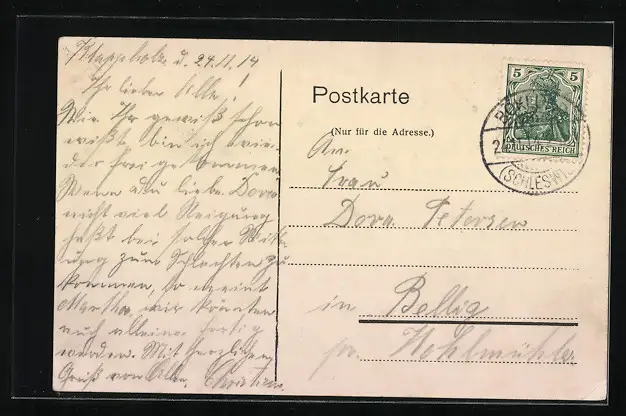 Klappholz d. 24.11.14
Ihr lieben Alle!
Wie Ihr gewiß schon
wißt bin ich wie-
der frei gekommen.
Wenn Du liebe Dora
nicht viel Neigung
hast bei solcher Witte-
rung zum Schlachten zu
kommen, so meint
Martha, wir könnten
auch alleine fertig
werden. Mit herzlichem
Gruß von Allen. Christian.
Postkarte
(Nur für die Adresse.)
An
Frau
Dora Petersen
in Bellig
pr. Kohlmühle
5 5
DEUTSCHES REICH
(SCHLESWIG)